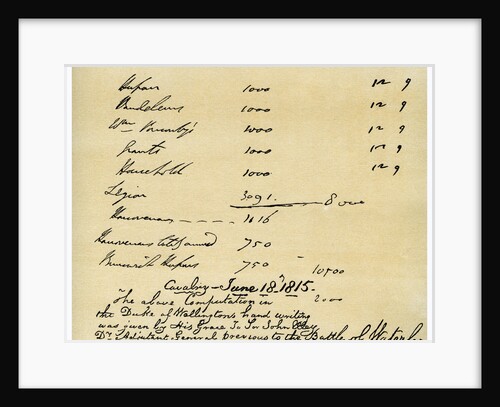 1000 12 9
Vandeleurs 1000 12 9
Wm Ponsonby's 1000 12 9
Grants 1000 12 9
Household 1000 12 9
Legion 3091. 8000
Hanoverians 1116
Hanoverians 750
Brunswick Hussars 750 10500
Cavalry - June 18th 1815 -
The above Computation in 2000
the Duke of Wellington's hand writing
was given by His Grace To Sir John Elley
Dy. Adjutant General previous to the Battle of